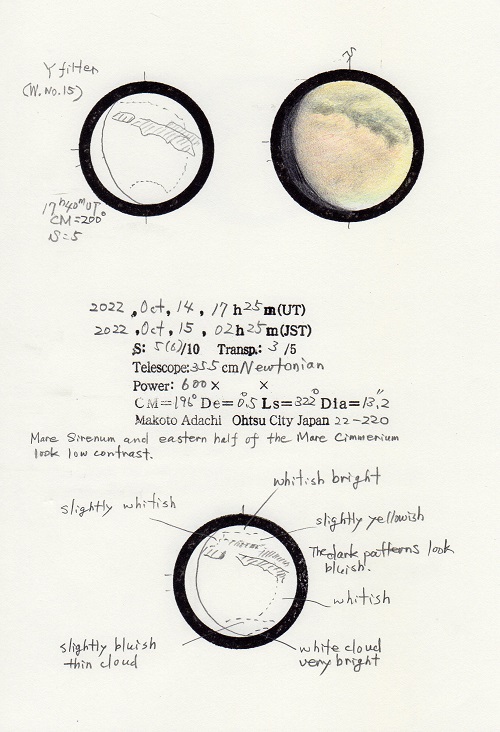 Y filter
(W.No.15)
N
17h40mUT
CM=200°
S=5
2022, Oct, 14, 17h25m(UT)
2022, Oct, 15, 02h25m(JST)
S: 5(6)/10 Transp.: 3/5
Telescope: 355cm Newtonian
Power: 600× ×
CM=196° De=0.5° Ls=322° Dia=13.″2
Makoto Adachi Ohtsu City Japan 22-220
Mare Sirenum and eastern half of the Mare Cimmerium
look low contrast.
whitish bright
slightly whitish
slightly yellowish
The dark patterns look
bluish.
whitish
slightly bluish
thin cloud
white cloud
very bright